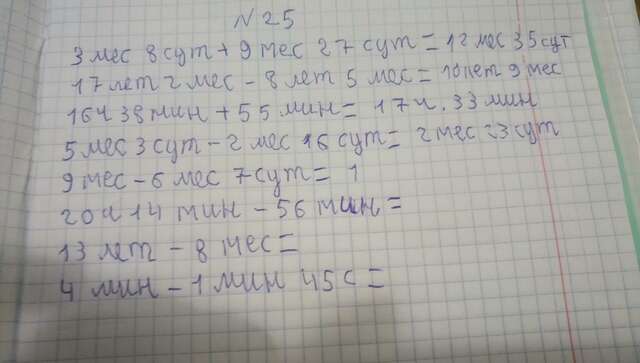 №25
3 мес 8 сут + 9 мес 27 сут = 12 мес 35 сут
17 лет 2 мес - 8 лет 5 мес = 10 лет 9 мес
16ч 38 мин + 55 мин = 17 ч. 33 мин
5 мес 3 сут - 2 мес 16 сут = 2 мес 23 сут
9 мес - 6 мес 7 сут = 1
20 ч 14 мин - 56 мин =
13 лет - 8 мес =
4 мин - 1 мин 45 с =